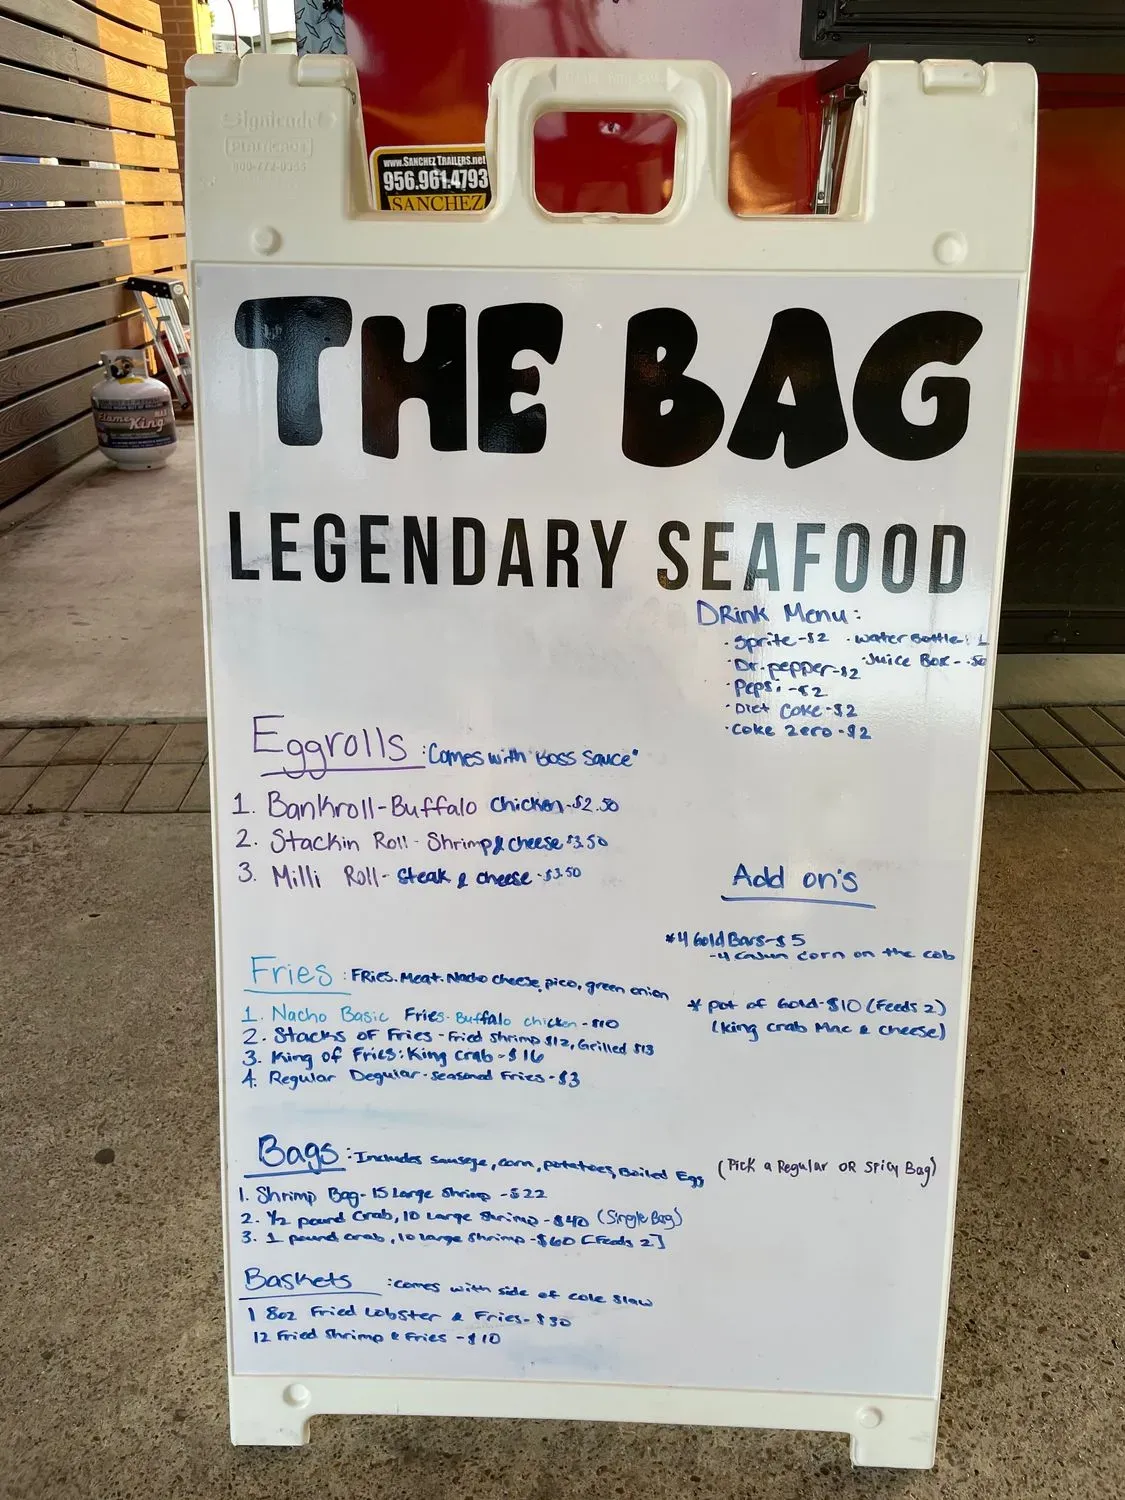 Signicade
PLASTICADE
800-772-0355
www.SANCHEZTRAILERS.net
956.961.4793
SANCHEZ
Flame King
THE BAG
LEGENDARY SEAFOOD
DRink Menu:
·Sprite-$2 ·water Bottle: 1
·Dr. pepper-$2 ·Juice Box-.50
·Pepsi-$2
·Diet Coke-$2
·Coke Zero-$2
Eggrolls :Comes with "Boss Sauce"
1. Bankroll-Buffalo Chicken-$2.50
2. Stackin Roll-Shrimp & cheese $3.50
3. Milli Roll-Steak & cheese-$3.50
Add on's
*4 Gold Bars-$5
-4 Cajun corn on the cob
* pot of Gold-$10 (Feeds 2)
(King crab Mac & cheese)
Fries : FRies. Meat. Nacho cheese, pico, green onion
1. Nacho Basic Fries-Buffalo chicken-$10
2. Stacks of Fries-Fried shrimp $12, Grilled $13
3. King of Fries: King crab-$16
4. Regular Degular-seasoned Fries-$3
Bags :Includes sausage, corn, potatoes, Boiled Egg (Pick a Regular OR Spicy Bag)
1. Shrimp Bag-15 Large Shrimp -$22
2. 1/2 pound Crab, 10 Large Shrimp-$40 (Single Bag)
3. 1 pound crab, 10 Large Shrimp-$60 [Feeds 2]
Baskets :comes with side of cole slaw
1 8oz Fried Lobster & Fries-$30
12 Fried Shrimp & Fries -$10